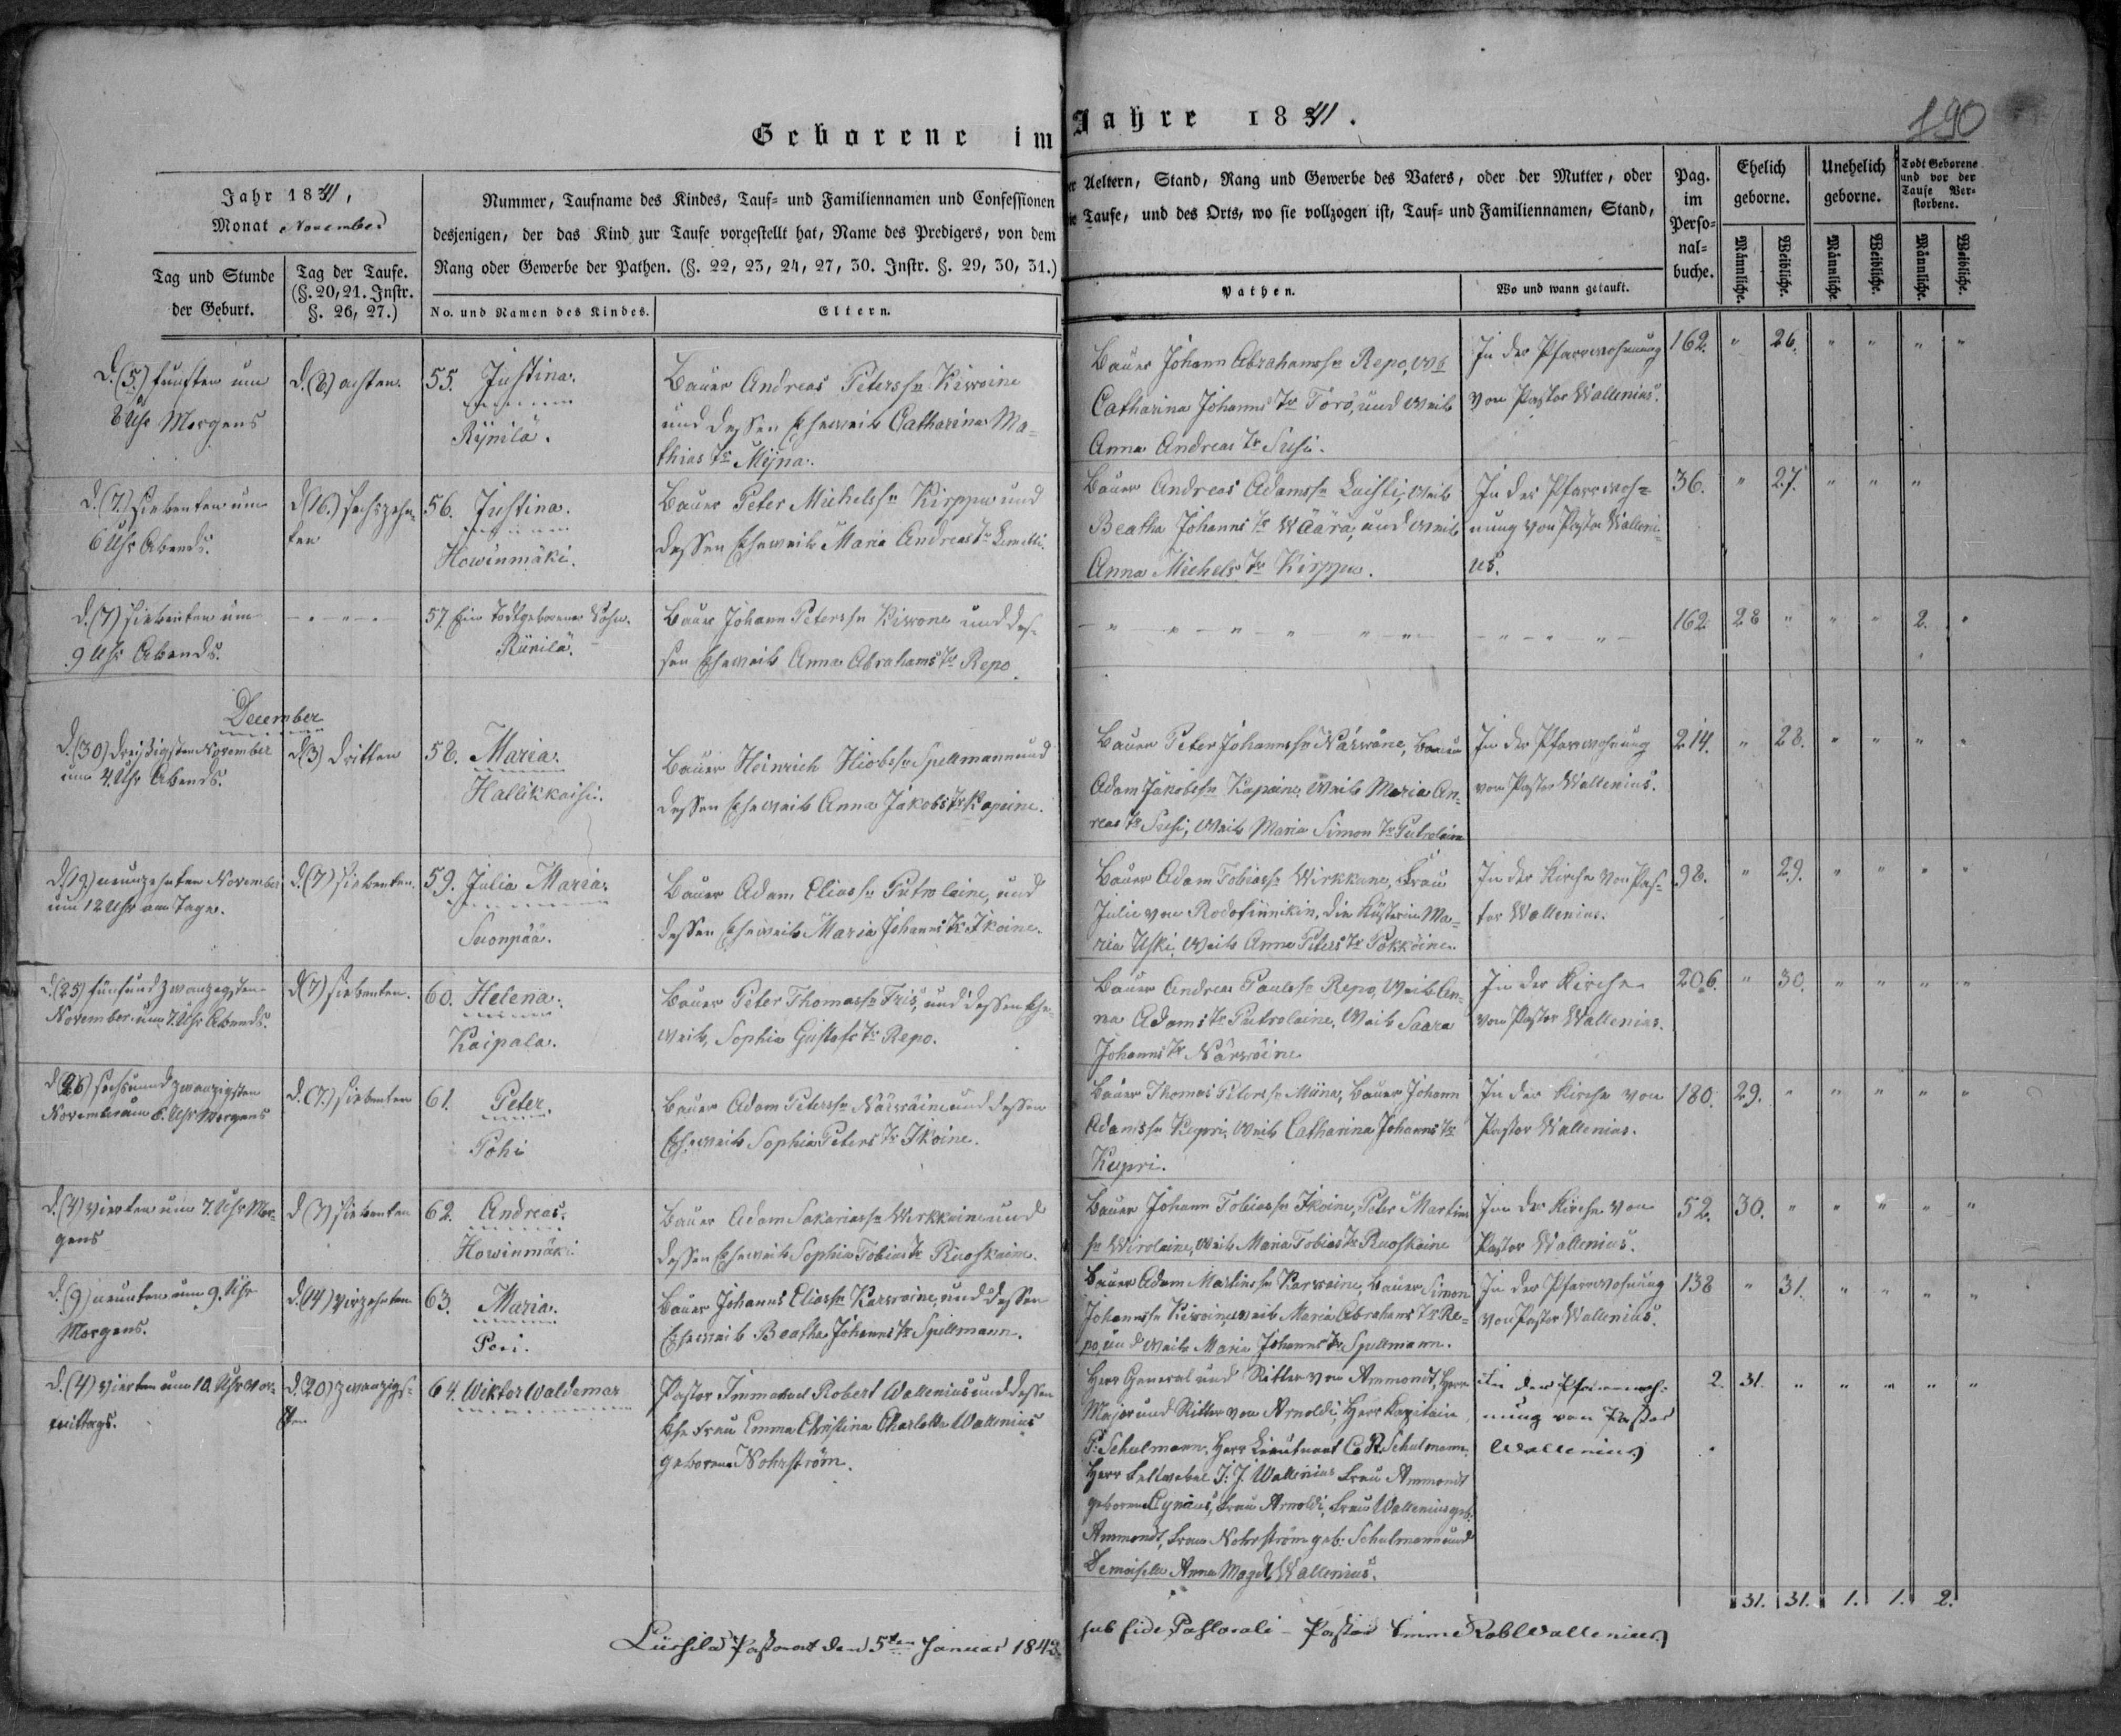 Geborene im Jahre 1841.
190
Jahr 1841,
Monat November
Tag und Stunde
der Geburt.
Tag der Taufe.
(§. 20, 21. Instr.
§. 26, 27.)
Nummer, Taufname des Kindes, Tauf- und Familiennamen und Confessionen
desjenigen, der das Kind zur Taufe vorgestellt hat, Name des Predigers, von dem
Rang oder Gewerbe der Pathen. (§. 22, 23, 24, 27, 30. Instr. §. 29, 30, 31.)
No. und Namen des Kindes.
Eltern.
er Aeltern, Stand, Rang und Gewerbe des Vaters, oder der Mutter, oder
ie Taufe, und des Orts, wo sie vollzogen ist, Tauf- und Familiennamen, Stand,
Pathen.
Wo und wann getauft.
Pag.
im
Perso-
nal-
buche.
Ehelich
geborne.
Unehelich
geborne.
Todt Geborene
und vor der
Taufe Ver-
storbene.
Männliche.
Weibliche.
Männliche.
Weibliche.
Männliche.
Weibliche.
d. (5.) fünften um
8 Uhr Morgens
d. (8) achten.
55. Justina.
Rÿnilä.
Bauer Andreas Peterssn Kiwoine
und dessen Eheweib Catharina Ma-
thias Tr Mÿna.
Bauer Johann Abrahamssn Repo, Wb
Catharina Johanns Tr Törö, und Weib
Anna Andreas Tr Susi.
In der Pfarrwohnung
von Pastor Wallenius.
162. " 26. " " " "
d. (7.) siebenten um
6 Uhr Abends.
d (16.) sechszehn-
ten
56. Justina.
Howinmäki.
Bauer Peter Michelssn Kirppu und
dessen Eheweib Maria Andreas Tr Lemetti.
Bauer Andreas Adamssn Luisti, Weib
Beatha Johanns Tr Wäärä, und Weib
Anna Michels Tr Kirppu.
In der Pfarrwoh-
nung von Pastor Walleni-
us.
36. " 27. " " "
d. (7) siebenten um
9 Uhr Abends.
57. Ein todtgeborener Sohn.
Rünilä.
Bauer Johann Peterssn Kiwone und des-
sen Eheweib Anna Abrahams Tr Repo.
162. 28 " " " 2. "
December
d. (30) dreißigsten November
um 4 Uhr Abends.
d (3) dritten
58. Maria.
Hallikkaisi.
Bauer Heinrich Hiobssn Spellmann und
dessen Eheweib Anna Jakobs Tr Kapaine.
Bauer Peter Johannssn Närwäne, Bauer
Adam Jakobssn Kapaine, Weib Maria An-
reas Tr Susi, Weib Maria Simon Tr Putrolaine
In der Pfarrwohnung
von Pastor Wallenius.
214. " 28. " " " "
d (19.) neunzehnten November
um 12 Uhr am Tage.
d. (7) siebenten.
59. Julia Maria.
Suonpää.
Bauer Adam Eliassn Putrolaine, und
dessen Eheweib Maria Johanns Tr Ikoine.
Bauer Adam Tobiassn Wirkkune, Frau
Julie von Rodofinnikin, die Küsterin Ma-
ria Uski, Weib Anna Peters Tr Pokköine.
In der Kirche von Pas-
tor Wallenius.
98. " 29. " " " "
d. (25) fünfundzwanzigsten
November um 7. Uhr Abends.
d (7) siebenten.
60. Helena.
Kaipala.
Bauer Peter Thomassn Fris, und dessen Ehe-
weib, Sophia Gustafs Tr Repo.
Bauer Andreas Paulssn Repo, Weib An-
na Adams Tr Putrolaine, Weib Saara
Johanns Tr Närwäine
In der Kirche
von Pastor Wallenius.
206. " 30. " " " "
d (26) sechsundzwanzigsten
November um 6. Uhr Morgens
d. (7.) siebenten
61. Peter.
Pohi
Bauer Adam Peterssn Närwäine und dessen
Eheweib Sophia Peters Tr Ikoine.
Bauer Thomas Peterssn Müna, Bauer Johann
Adamssn Kupri, Weib Catharina Johanns Tr
Kupri.
In der Kirche von
Pastor Wallenius.
180. 29. " " " " "
d. (4) vierten um 7. Uhr Mor-
gens
d (7) siebenten
62. Andreas.
Howinmäki
Bauer Adam Sakariassn Wirkkuine und
dessen Eheweib Sophia Tobias Tr Ruoskaine.
Bauer Johann Tobiassn Ikoine, Peter Martins
sn Wirolaine, Weib Maria Tobias Tr Ruoskaine
In der Kirche von
Pastor Wallenius.
52. 30. " " " " "
d. (9) neunten um 9. Uhr
Morgens.
d. (14) vierzehnten
63. Maria.
Pori.
Bauer Johanns Eliassn Karwaine, und dessen
Eheweib Beatha Johanns Tr Spellmann.
Bauer Adam Martinssn Karwaine, Bauer Simon
Johannssn Kiwoine, Weib Maria Abrahams Tr Re-
po, und Weib Maria Johanns Tr Spellmann.
In der Pfarrwohnung
von Pastor Wallenius.
138 " 31. " " " "
d. (4) vierten um 10. Uhr Vor-
mittags.
d. (20) zwanzigs-
ten
64. Wiktor Waldemar
Pastor Immanuel Robert Wallenius und dessen
Ehefrau Emma Christina Charlotta Wallenius
geborene Nohrström.
Herr General und Ritter von Ammondt, Herr
Major und Ritter von Arnoldi, Herr Kapitain
P. Schulmann, Herr Lieutnant C. R. Schulmann,
Herr Feldwebel J. J. Wallenius Frau Ammondt
geborene Cynäus, Frau Arnoldi, Frau Wallenius geb.
Ammondt, Frau Nohrström geb: Schulmann und
Demoiselle Anna Magd. Wallenius.
In der Pfarrwoh-
nung von Pastor
Wallenius
2. 31. " " " " "
31. 31. 1. 1. 2.
Pastorat den 5ten Januar 1842
sub fide Pastorali - Pastor Imm Rob Wallenius